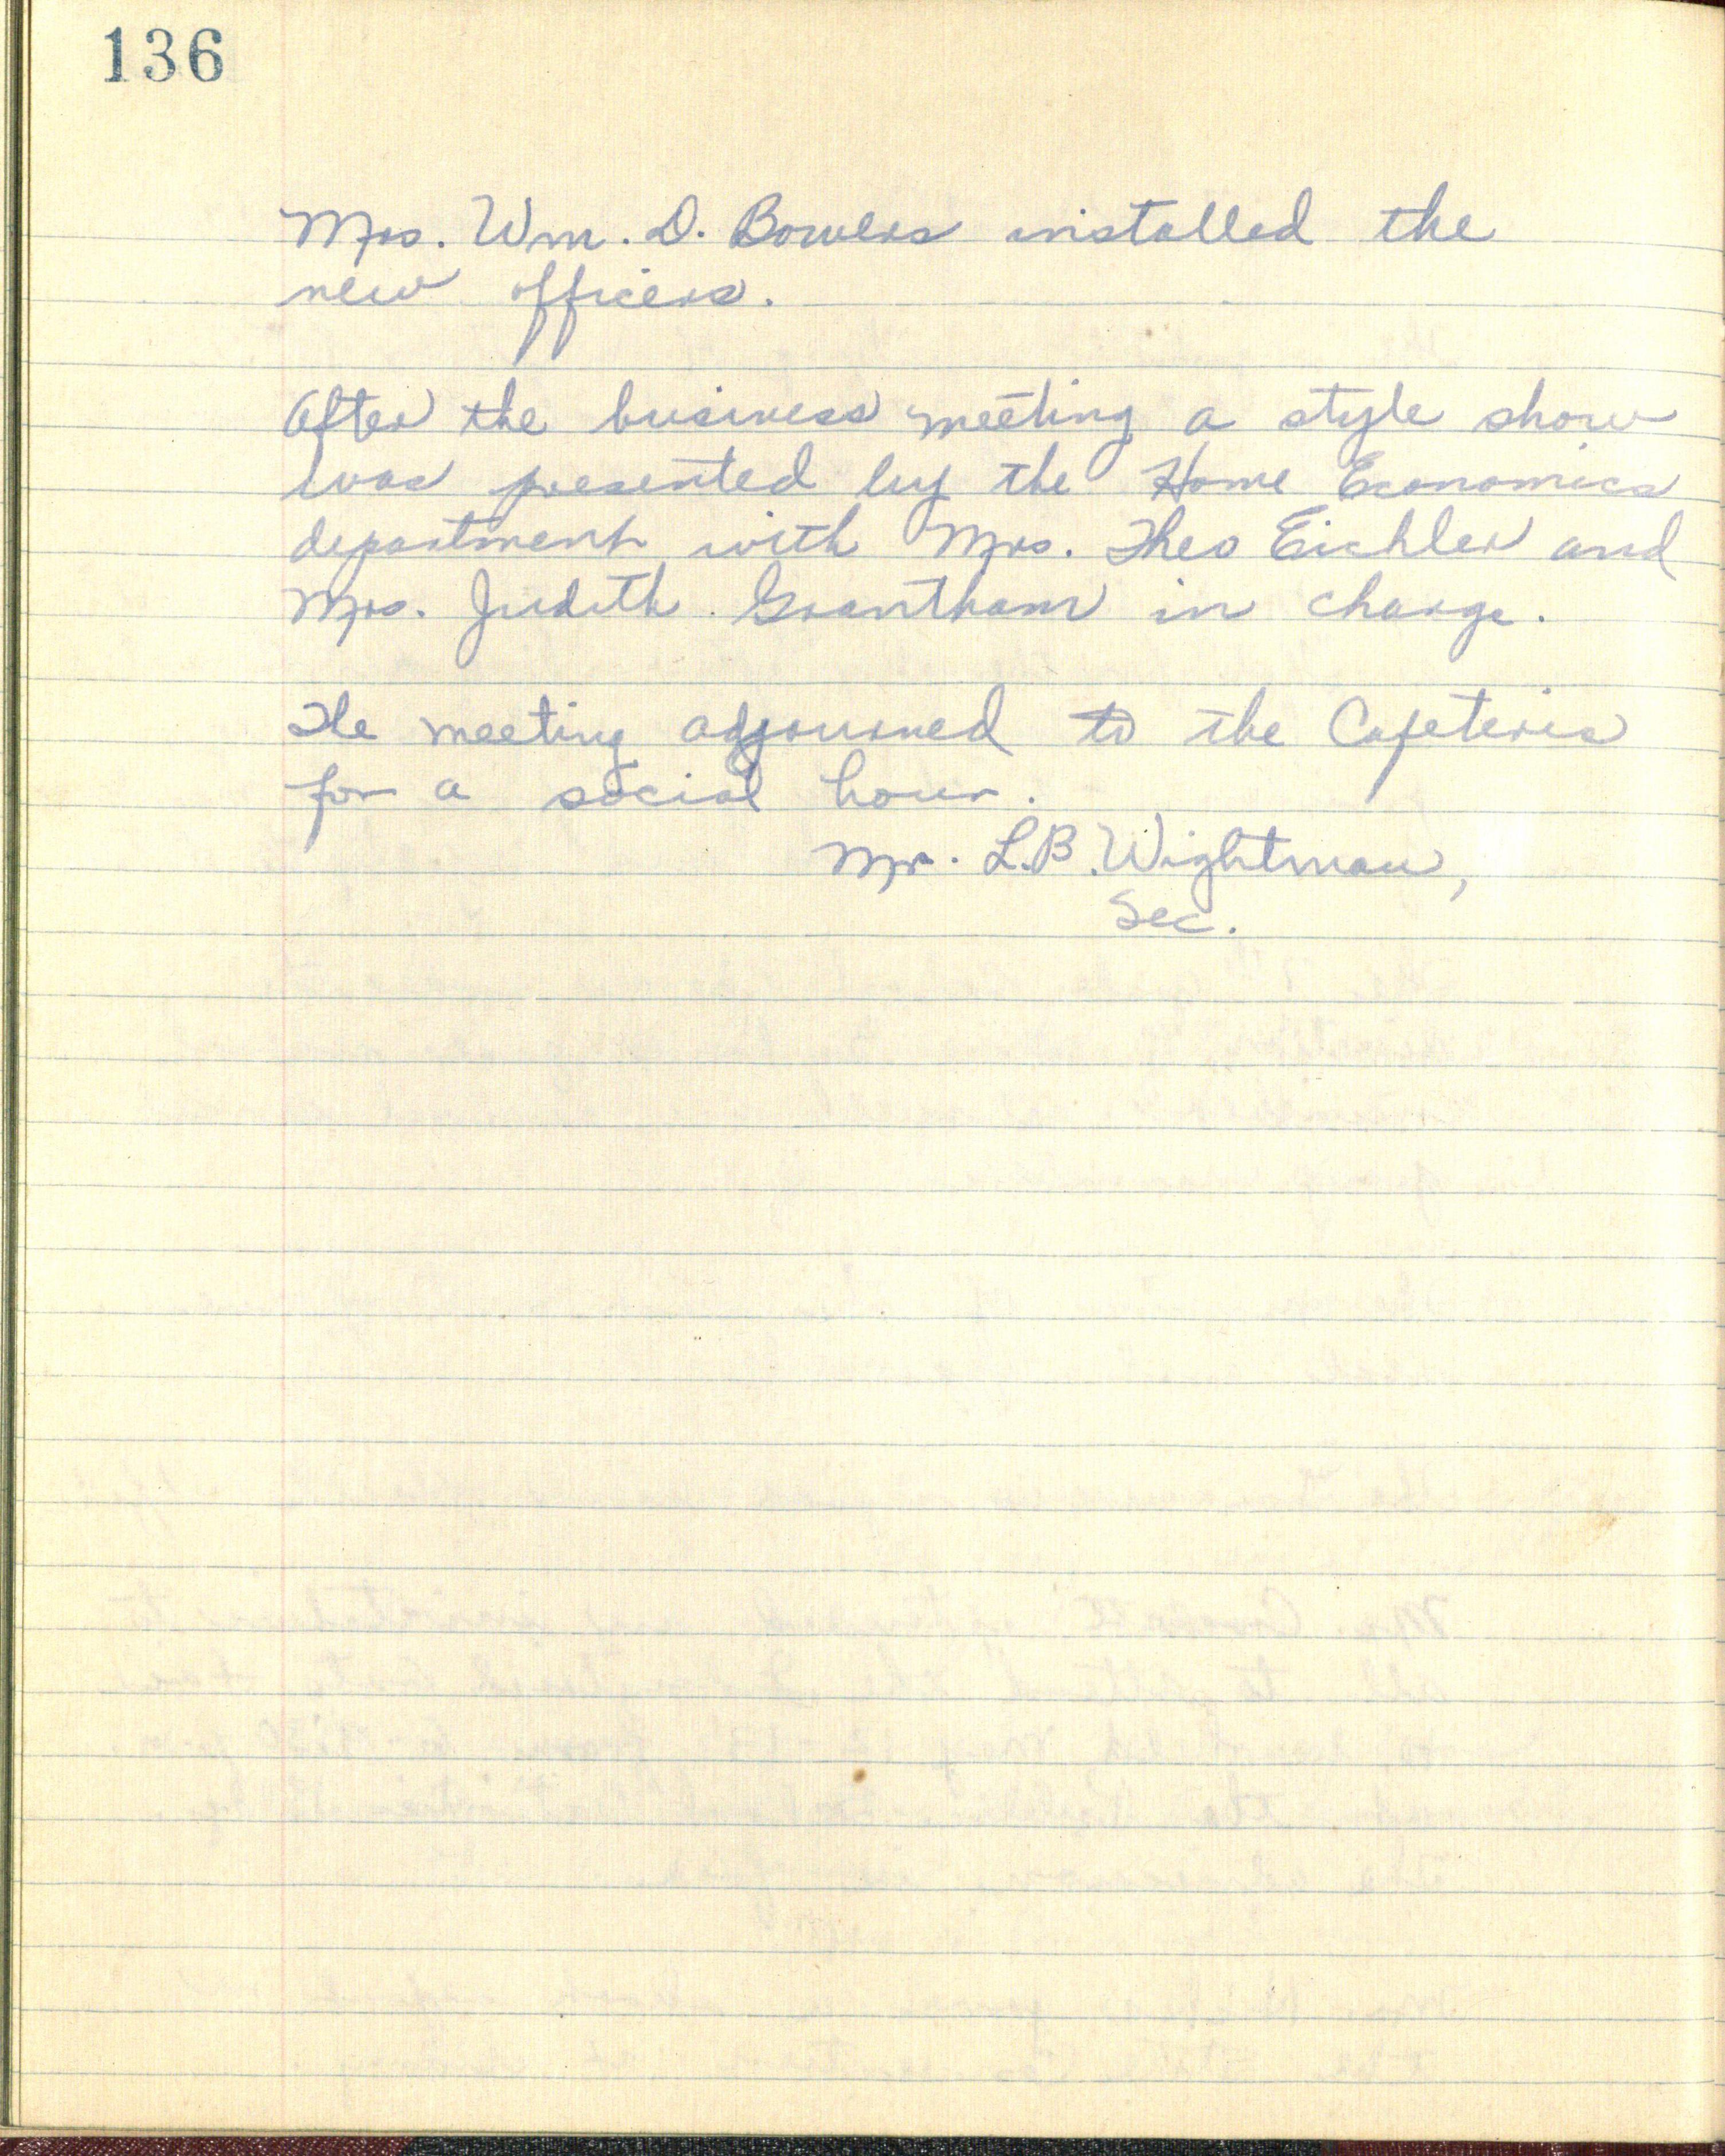 136
Mrs. Wm. D. Bowers installed the
new officers.
After the business meeting a style show
was presented by the Home Economics
department with Mrs. Theo Eichler and
Mrs. Judith Grantham in charge.
The meeting adjourned to the Cafeteria
for a social hour.
Mr. L.B. Wightman,
Sec.